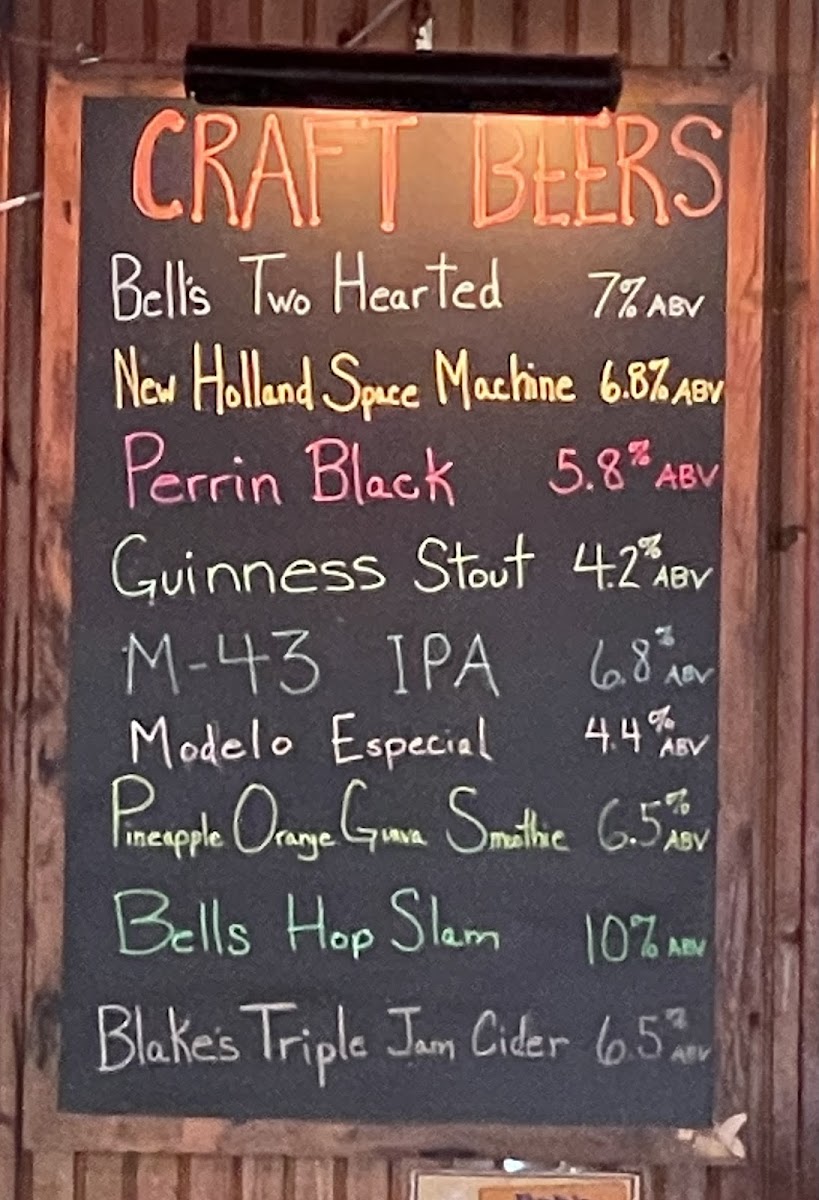 CRAFT BEERS
Bell's Two Hearted 7% ABV
New Holland Space Machine 6.8% ABV
Perrin Black 5.8% ABV
Guinness Stout 4.2% ABV
M-43 IPA 6.8% ABV
Modelo Especial 4.4% ABV
Pineapple Orange Guava Smoothie 6.5% ABV
Bells Hop Slam 10% ABV
Blake's Triple Jam Cider 6.5% ABV